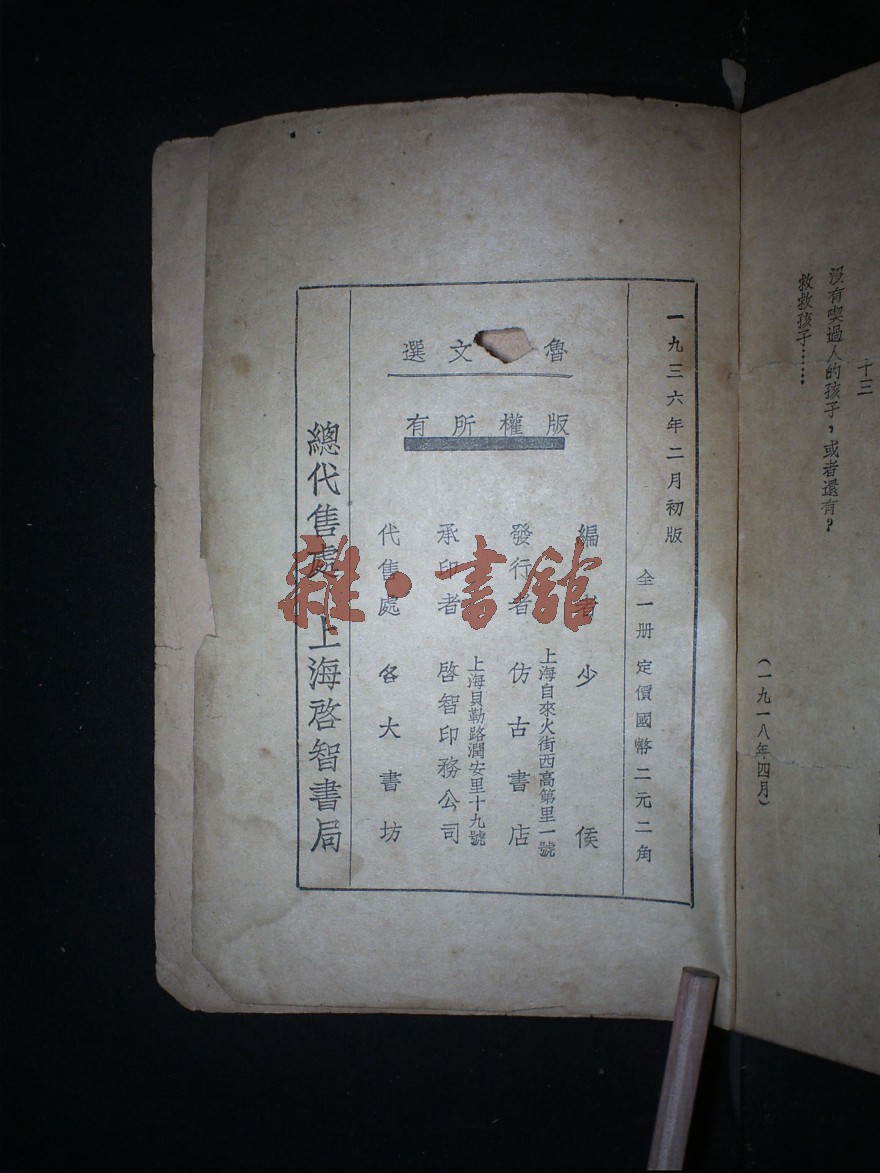 十三
沒有喫過人的孩子，或者還有？
救救孩子……
（一九一八年四月）
一九三六年二月初版
全一册 定價國幣二元二角
魯 文選
版權所有
編者 少侯
上海自來火街西高第里一號
發行者 仿古書店
上海貝勒路潤安里十九號
承印者 啓智印務公司
代售處 各大書坊
總代售處 上海啓智書局
雜·書館